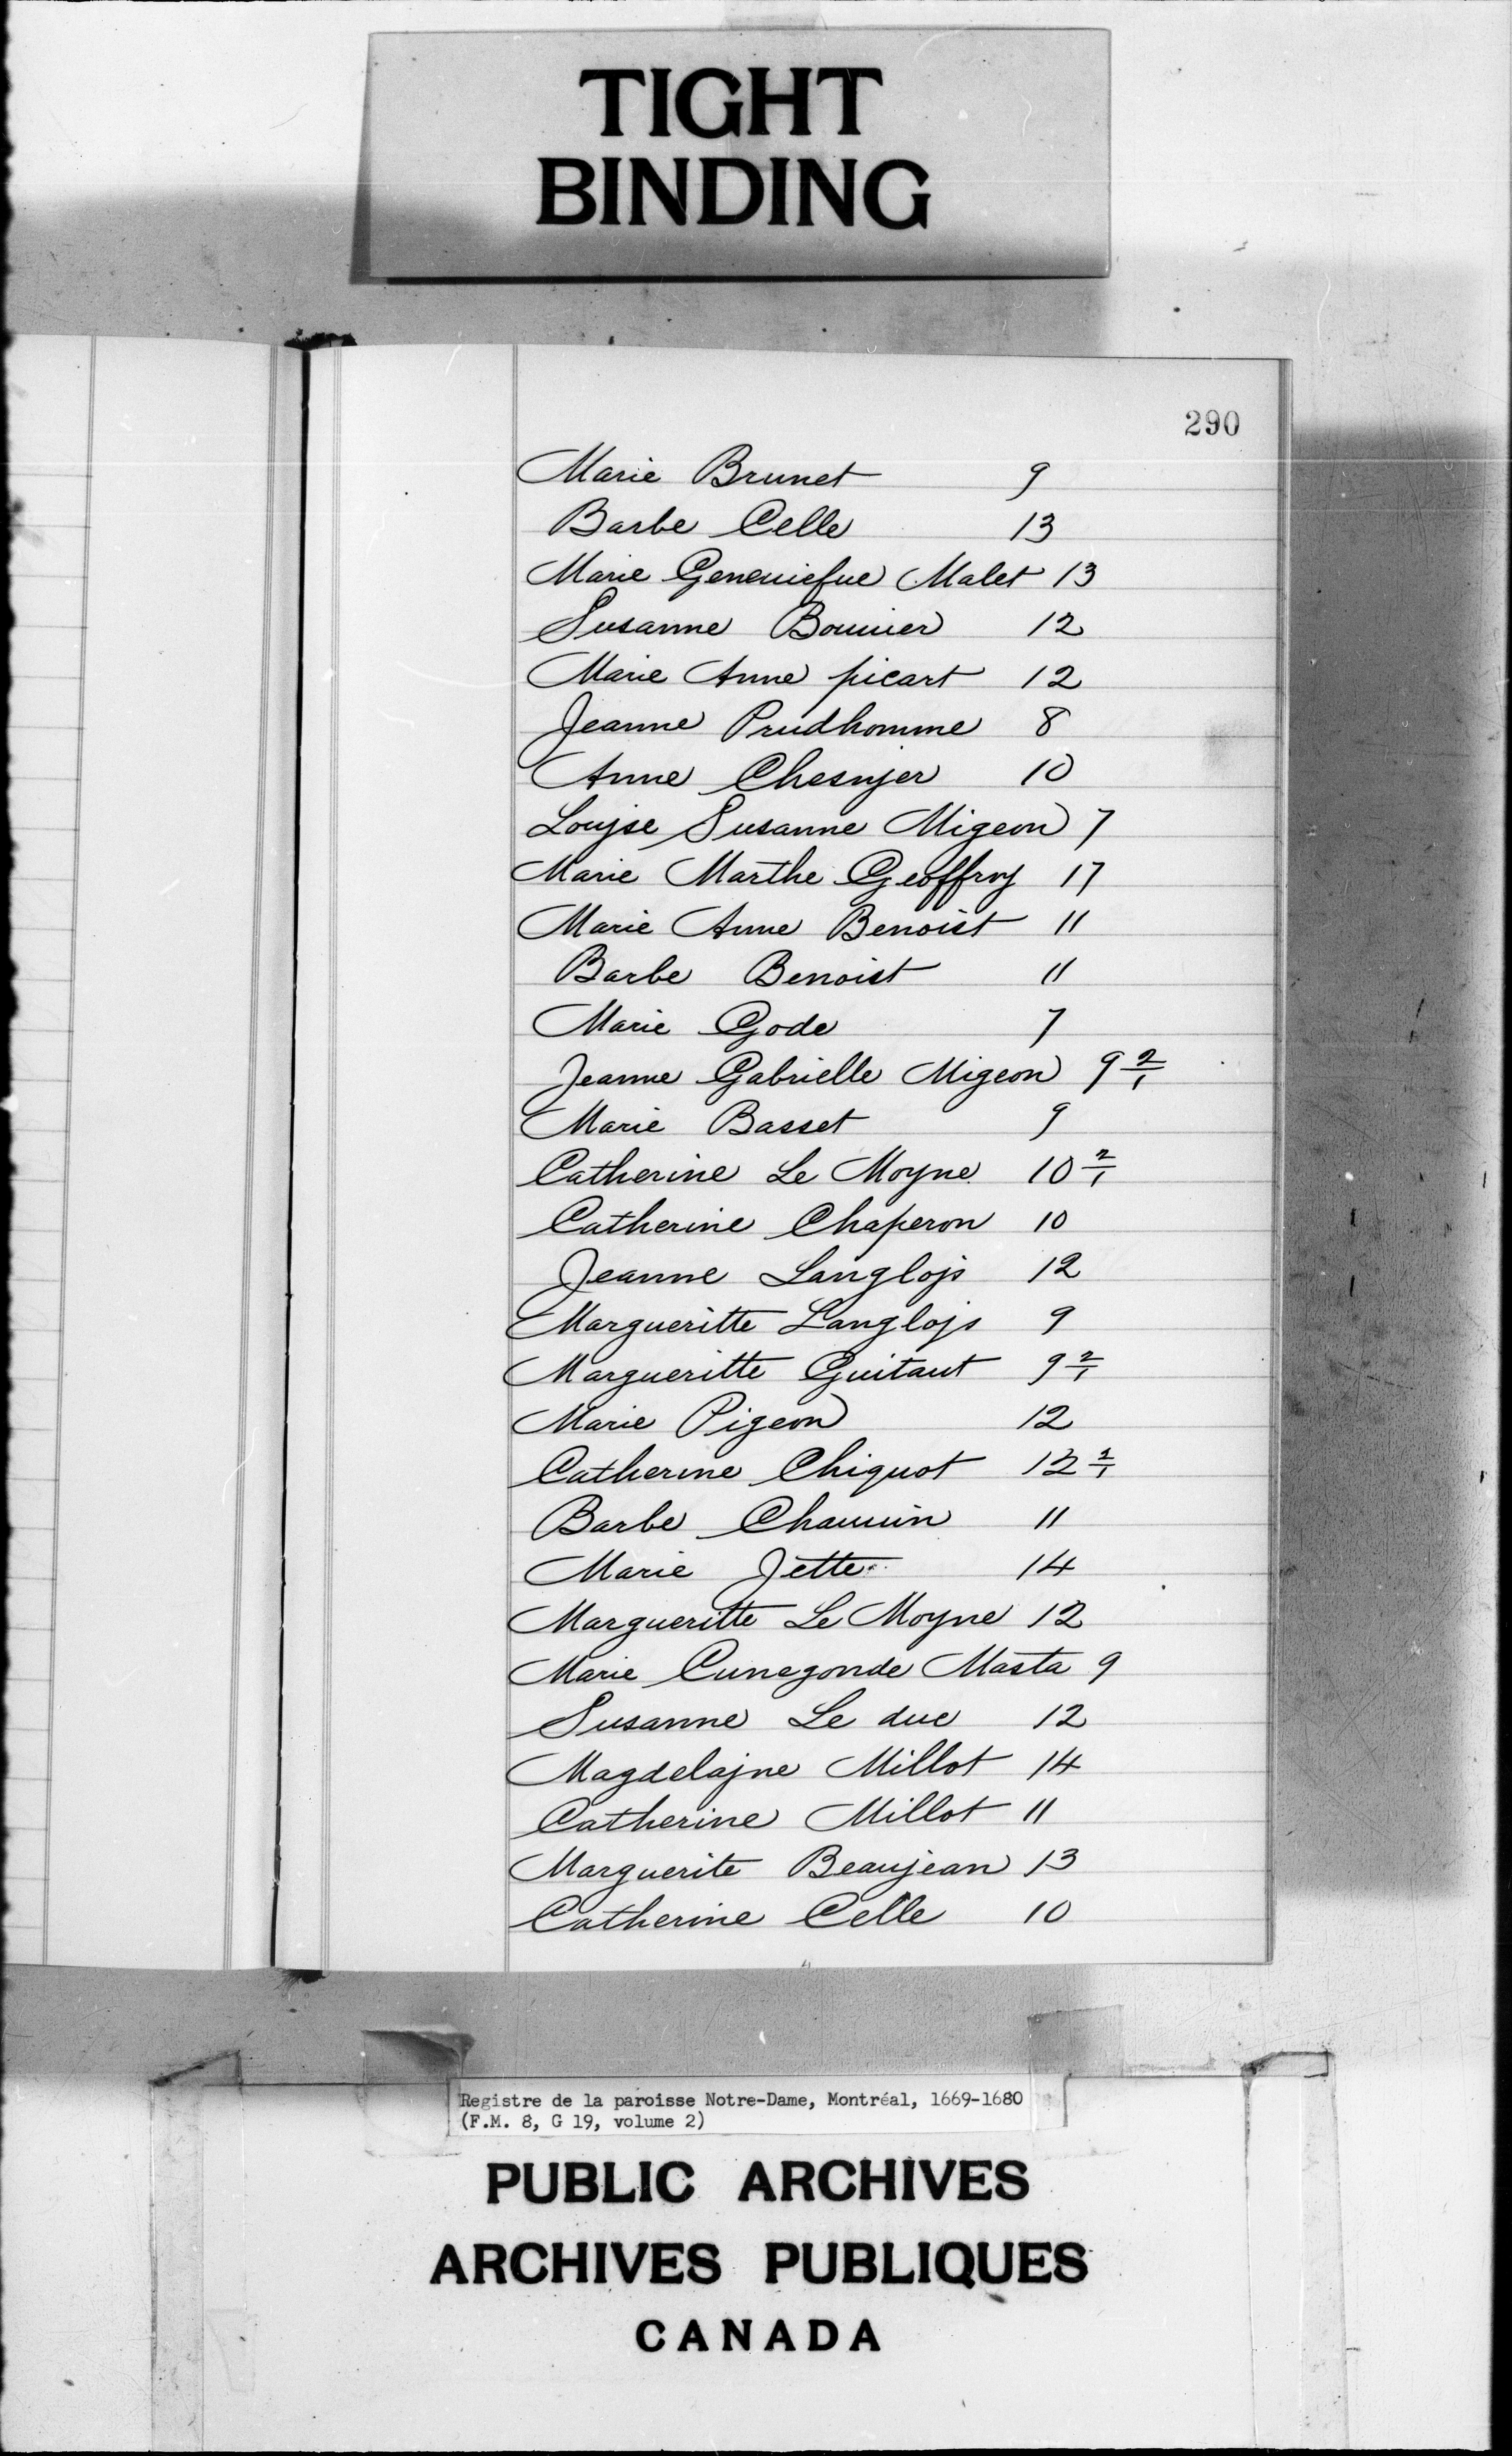 TIGHT
BINDING
290
Marie Brunet 9
Barbe Celle 13
Marie Geneuiefue Malet 13
Susanne Bouuier 12
Marie Anne picart 12
Jeanne Prudhomme 8
Anne Chesnjer 10
Loujse Susanne Migeon 7
Marie Marthe Geoffroy 17
Marie Anne Benoist 11
Barbe Benoist 11
Marie Gode 7
Jeanne Gabrielle Migeon 9 2/1
Marie Basset 9
Catherine Le Moyne 10 2/1
Catherine Chaperon 10
Jeanne Langlojs 12
Margueritte Langlojs 9
Margueritte Guitaut 9 2/1
Marie Pigeon 12
Catherine Chiquot 12 2/1
Barbe Chauuin 11
Marie Jette 14
Margueritte Le Moyne 12
Marie Cunegonde Masta 9
Susanne Le duc 12
Magdelajne Millot 14
Catherine Millot 11
Marguerite Beaujean 13
Catherine Celle 10
Registre de la paroisse Notre-Dame, Montréal, 1669-1680
(F.M. 8, G 19, volume 2)
PUBLIC ARCHIVES
ARCHIVES PUBLIQUES
CANADA